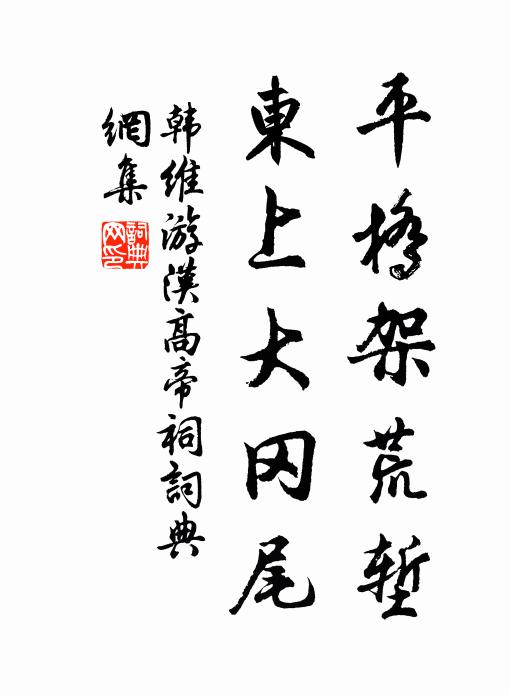 平橋架荒塹
東上大冈尾
韩維游漢高帝祠詞典
網集
詞典网印